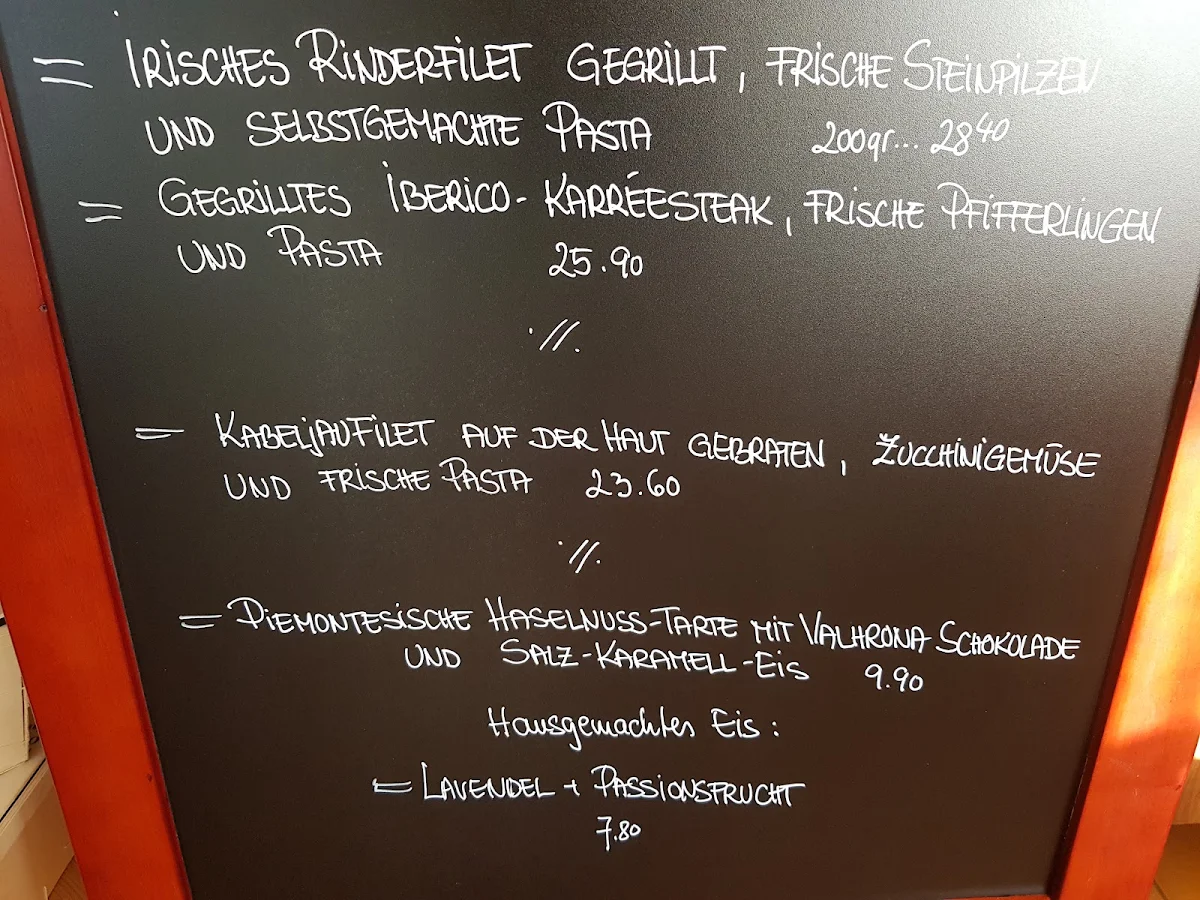 = IRISCHES RINDERFILET GEGRILLT, FRISCHE STEINPILZEN
UND SELBSTGEMACHTE PASTA 200gr... 28⁴⁰
= GEGRILLTES IBERICO-KARRÉESTEAK, FRISCHE PFIFFERLINGEN
UND PASTA 25.90
·//.
= KABELJAUFILET AUF DER HAUT GEBRATEN, ZUCCHINIGEMÜSE
UND FRISCHE PASTA 23.60
·//.
= PIEMONTESISCHE HASELNUSS-TARTE MIT VALHRONA SCHOKOLADE
UND SALZ-KARAMELL-EIS 9.90
Hausgemachtes Eis:
= LAVENDEL + PASSIONSFRUCHT
7.80